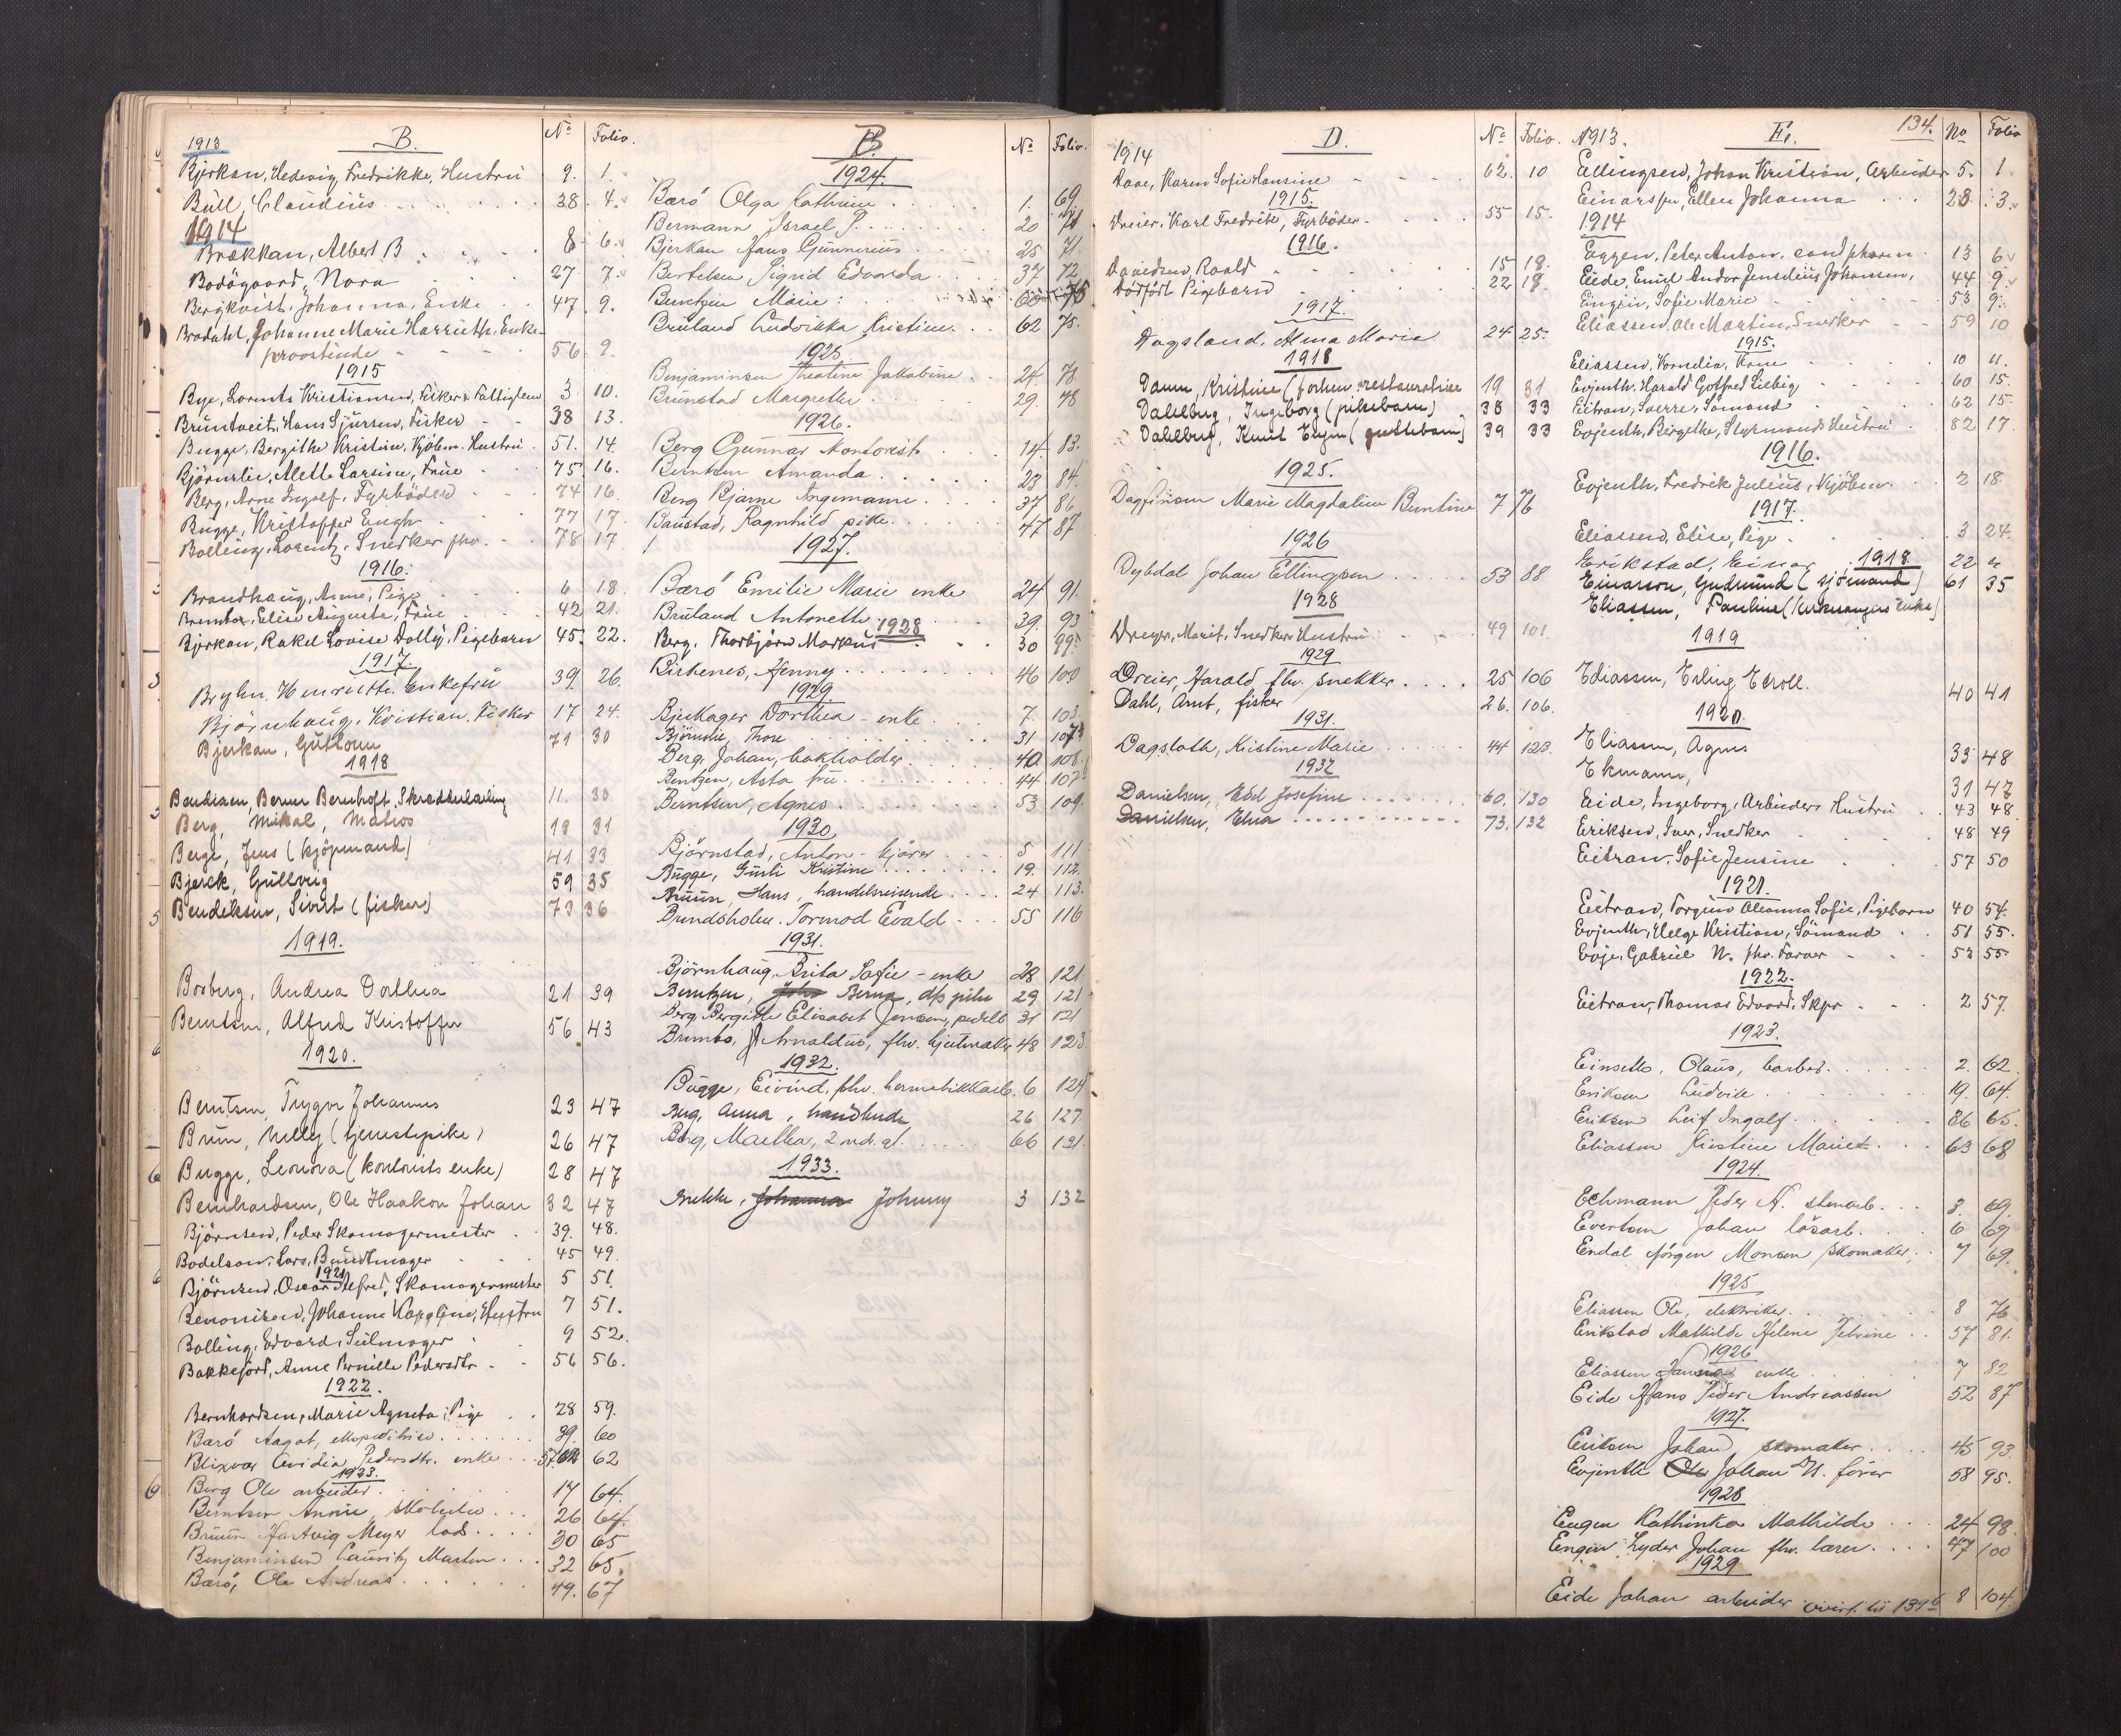 1913 B. No Folio.
Bjerkan, Hedevig Fredrikke, Hustru 9. 1.
Büll, Claudius 38. 4.
1914
Brækkan, Albert B 8 6.
Bodøgaard, Nora 27 7.
Bergkvist, Johanna, Enke 47. 9.
Bradahl, Johanne Marie Enke-
provstinde 56 9.
1915
Bye, Lornts Kristiansen, Fisker & Fattiglem 3 10.
Bruntveit, Hans Sjursen, Fisker 38 13.
Bugge, Bergithe Kristine, Kjøbm. Hustru 51. 14.
Bjørnelie, Alette Larsine, Frue 75 16.
Berg, Arne Ingolf, Fyrbøder 74 16.
Bugge, Kristoffer Engh 77 17.
Bolling, Lorentz, Snedker fhv. 78 17
1916.
Brandhaug, Anne, Pige 6 18.
Brembo, Elise Augusta, Frue 42 21.
Bjerkan, Rakel Lovise Dolly, Pigebarn 45. 22.
1917.
Bryhn, Henriette, Enkefru 39 26.
Bjørnhaug, Kristian, Fisker 17 24.
Bjerkan, Guttorm 71 30
1918
Bendixen, Berner Bernhoft, Skrædderlærling 11. 30
Berg, Mikal, Matros 19 31
Berge, Jens (kjøpmand) 41 33
Bjerck, Gullveig 59 35
Bendiksen, Sivert (fisker) 73 36
1919.
Borberg, Andrea Dorthea 21 39
Berntsen, Alfred Kristoffer 56 43
1920.
Berntsen, Trygve Johannes 23 47
Brun, Nelly (tjenestepike) 26 47
Bugge, Leonora (kontorists enke) 28 47
Bernhardsen, Ole Haakon Johan 32 47
Bjørnsen, Peder Skomagermester 39. 48.
Bodelsen, Lars, Buntmager 45 49.
1921
Bjørnsen, Oscar Alfred, Skomagermester 5 51.
Benonisen, Johanne Karoline, Hustru 7 51.
Bolling, Edvard, Seilmager 9 52.
Bakkefjord, Anne Pernille Pedersdtr. 56 56.
1922.
Bernhardsen, Marie Agneta, Pige 28 59.
Barø Aagot, ekspeditrise 39. 60
Blixvær Ovidia Pedersdtr. enke 57. 62
1923.
Berg Ole arbeider 17 64.
Berntsen Annie 26 64
Bruun Hartvig Meyer lods 30 65
Benjaminsen Lauritz Martin 32 65.
Barø, Ole Andreas 49. 67
B. No Folio.
1924.
Barø Olga Cathrine 1. 69.
Bermann Israel P. 20 70
Bjerkan Hans Gunnerius 25 71.
Bertelsen Sigrid Edvarda 37 72
Berntzen Marie 60 75
Bruland Ludvikka Kristine 62 75.
1925.
Benjaminsen Theoline Jakobine 24 78
Brunstad Margrethe 29. 78
1926.
Berg Gunnar Kontorist 14 83.
Berntsen Amanda 23 84.
Berg Bjarne Ingemann 37 86
Baustad, Ragnhild pike 47 87
1927.
Barø Emilie Marie enke 24 91.
Bruland Antonette 39. 93
1928
Berg, Thorbjørn Markus 30 99.
Birkenes, Jenny 46 100
1929.
Bjerkager Dorthea - enke 7. 103.
Bjørnelie, Thore 31 107
Berg, Johan, bokholder 40 108.
Bentzen, Asta fru 44 107
Berntsen, Agnes 53 109.
1930.
Bjørnstad, Anton - kjører 5 111.
Bugge, Gusti Kristine 19. 112.
Bruun, Hans, handelsreisende 24 113.
Brundsholm. Tormod Evald 55 116
1931.
Bjørnhaug, Brita Sofie - enke 28 121.
Berntzen, Berna, dfs pike 29 121
Berg, Bergithe Elisabet Jensen, 31 121
Brembo, Arnoldus, fhv. hjulmaker 48 123
1932.
Bugge, Eivind, fhv. hermetikkarb. 6 124
Berg, Anna, handlende 26 127.
Berg, Martha, 66 131.
1933.
Brekke, Johanna Johnny 3 132
1914 D. No Folio.
Daae, Karen Sofie Hansine 62. 10
1915.
Dreier, Karl Fredrik, Fyrbøder 55 15.
1916.
Davidsen, Roald 15 18.
Dødfødt Pigebarn 22 18.
1917.
Dagsland, Alma Marie 24 25.
1918
Damm, Kristine (forhen restauratrise 19 31
Dahlberg, Ingeborg (pikebarn) 38 33
Dahlberg, Knut (guttebarn) 39 33
1925.
Dagfinsen Marie Magdaline Buntine 7 76
1926
Dybdal Johan Ellingsen 53 88
1928
Dreyer, Marit, Snedkers Hustru 49 101.
1929
Dreier, Harald fhv. snekker 25 106
Dahl, Arnt, fisker 26. 106.
1931.
Dagsloth, Kristine Marie 44 123.
1932
Danielsen, Edel Josefine 60. 130
Danielsen, Elna 73. 132
1913. E. 134. No Folio
Edlingsen, Johan Kristian, Arbeider 5. 1.
Einarsen, Ellen Johanna 28 3.
1914
Eggen, Peter Anton, cand pharm 13 6
Eide, Emil Andor Jensenius Johansen, 44 9.
Engen, Sofie Marie 53 9.
Eliassen, Ole Martin, Snedker 59 10
1915.
Eliassen, Kornelia, Kone 10 11.
Evjenth, Harald Gotfred Liebig 60 15.
Eitran, Sverre, Sømand 62 15.
Evjenth, Bergethe, Styrmands Hustru 82 17.
1916.
Evjenth, Fredrik Julius, Kjøbm. 2 18.
1917.
Eliassen, Elise, Pige 3 24.
Erikstad, Einar 22 "
1918.
Einarsen, Gudmund (sjømand) 61 35
Eliassen, Pauline (kirkesangers enke)
1919
Eliassen, Erling Eroll. 40 41
1920.
Eliassen, Agnes 33 48
Ekmann, 31 47
Eide, Ingeborg, Arbeiders Hustru 43 48.
Eriksen, Iver, Snedker 48 49
Eitran, Sofie Jensine 57 50
1921.
Eitran, Torgun Oleanna Sofie, Pigebarn 40 54.
Evjenth, Helge Kristian, Sømand 51 55.
Evje, Gabriel N. fhv. Farver 53 55.
1922.
Eitran, Thomas Edvard, Skpr 2 57.
1923.
Einseth, Olaus, barber 2. 62
Eriksen Ludvik 19. 64.
Eriksen Leif Ingolf 36 65.
Eliassen Kirstine Marie 63 68
1924.
Echmann Peder A. stenarb. 3. 69.
Evertsen Johan løsarb. 6 69
Endal Jørgen Monsen Skomaker 7 69.
1925
Eliassen Ole, elektriker 8 76
Erikstad Mathilde Helene Petrine 57 81.
1926
Eliassen enke 7 82
Eide Hans Peder Andreassen 52 87
1927.
Eriksen Johan, skomaker 45 93.
Evjenth Ole Johan H. fører 58 95.
1928
Engen Kathinka Mathilde 24 98.
Engen Lyder Johan fhv. lærer 47 100
1929
Eide Johan arbeider overf. til 139 8 104